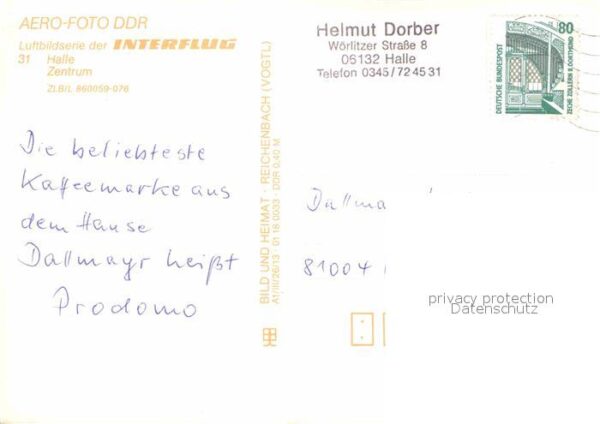 AERO-FOTO DDR
Luftbildserie der INTERFLUG
31 Halle
Zentrum
ZLB/L 860059-076
Die beliebteste
Kaffeemarke aus
dem Hause
Dallmayr heißt
Prodomo
BILD UND HEIMAT · REICHENBACH (VOGTL)
A1/III/26/13 01 18 0033 · DDR 0,40 M
Helmut Dorber
Wörlitzer Straße 8
05132 Halle
Telefon 0345/72 45 31
80
DEUTSCHE BUNDESPOST
ZECHE ZOLLERN II, DORTMUND
Dallma
81004
privacy protection
Datenschutz